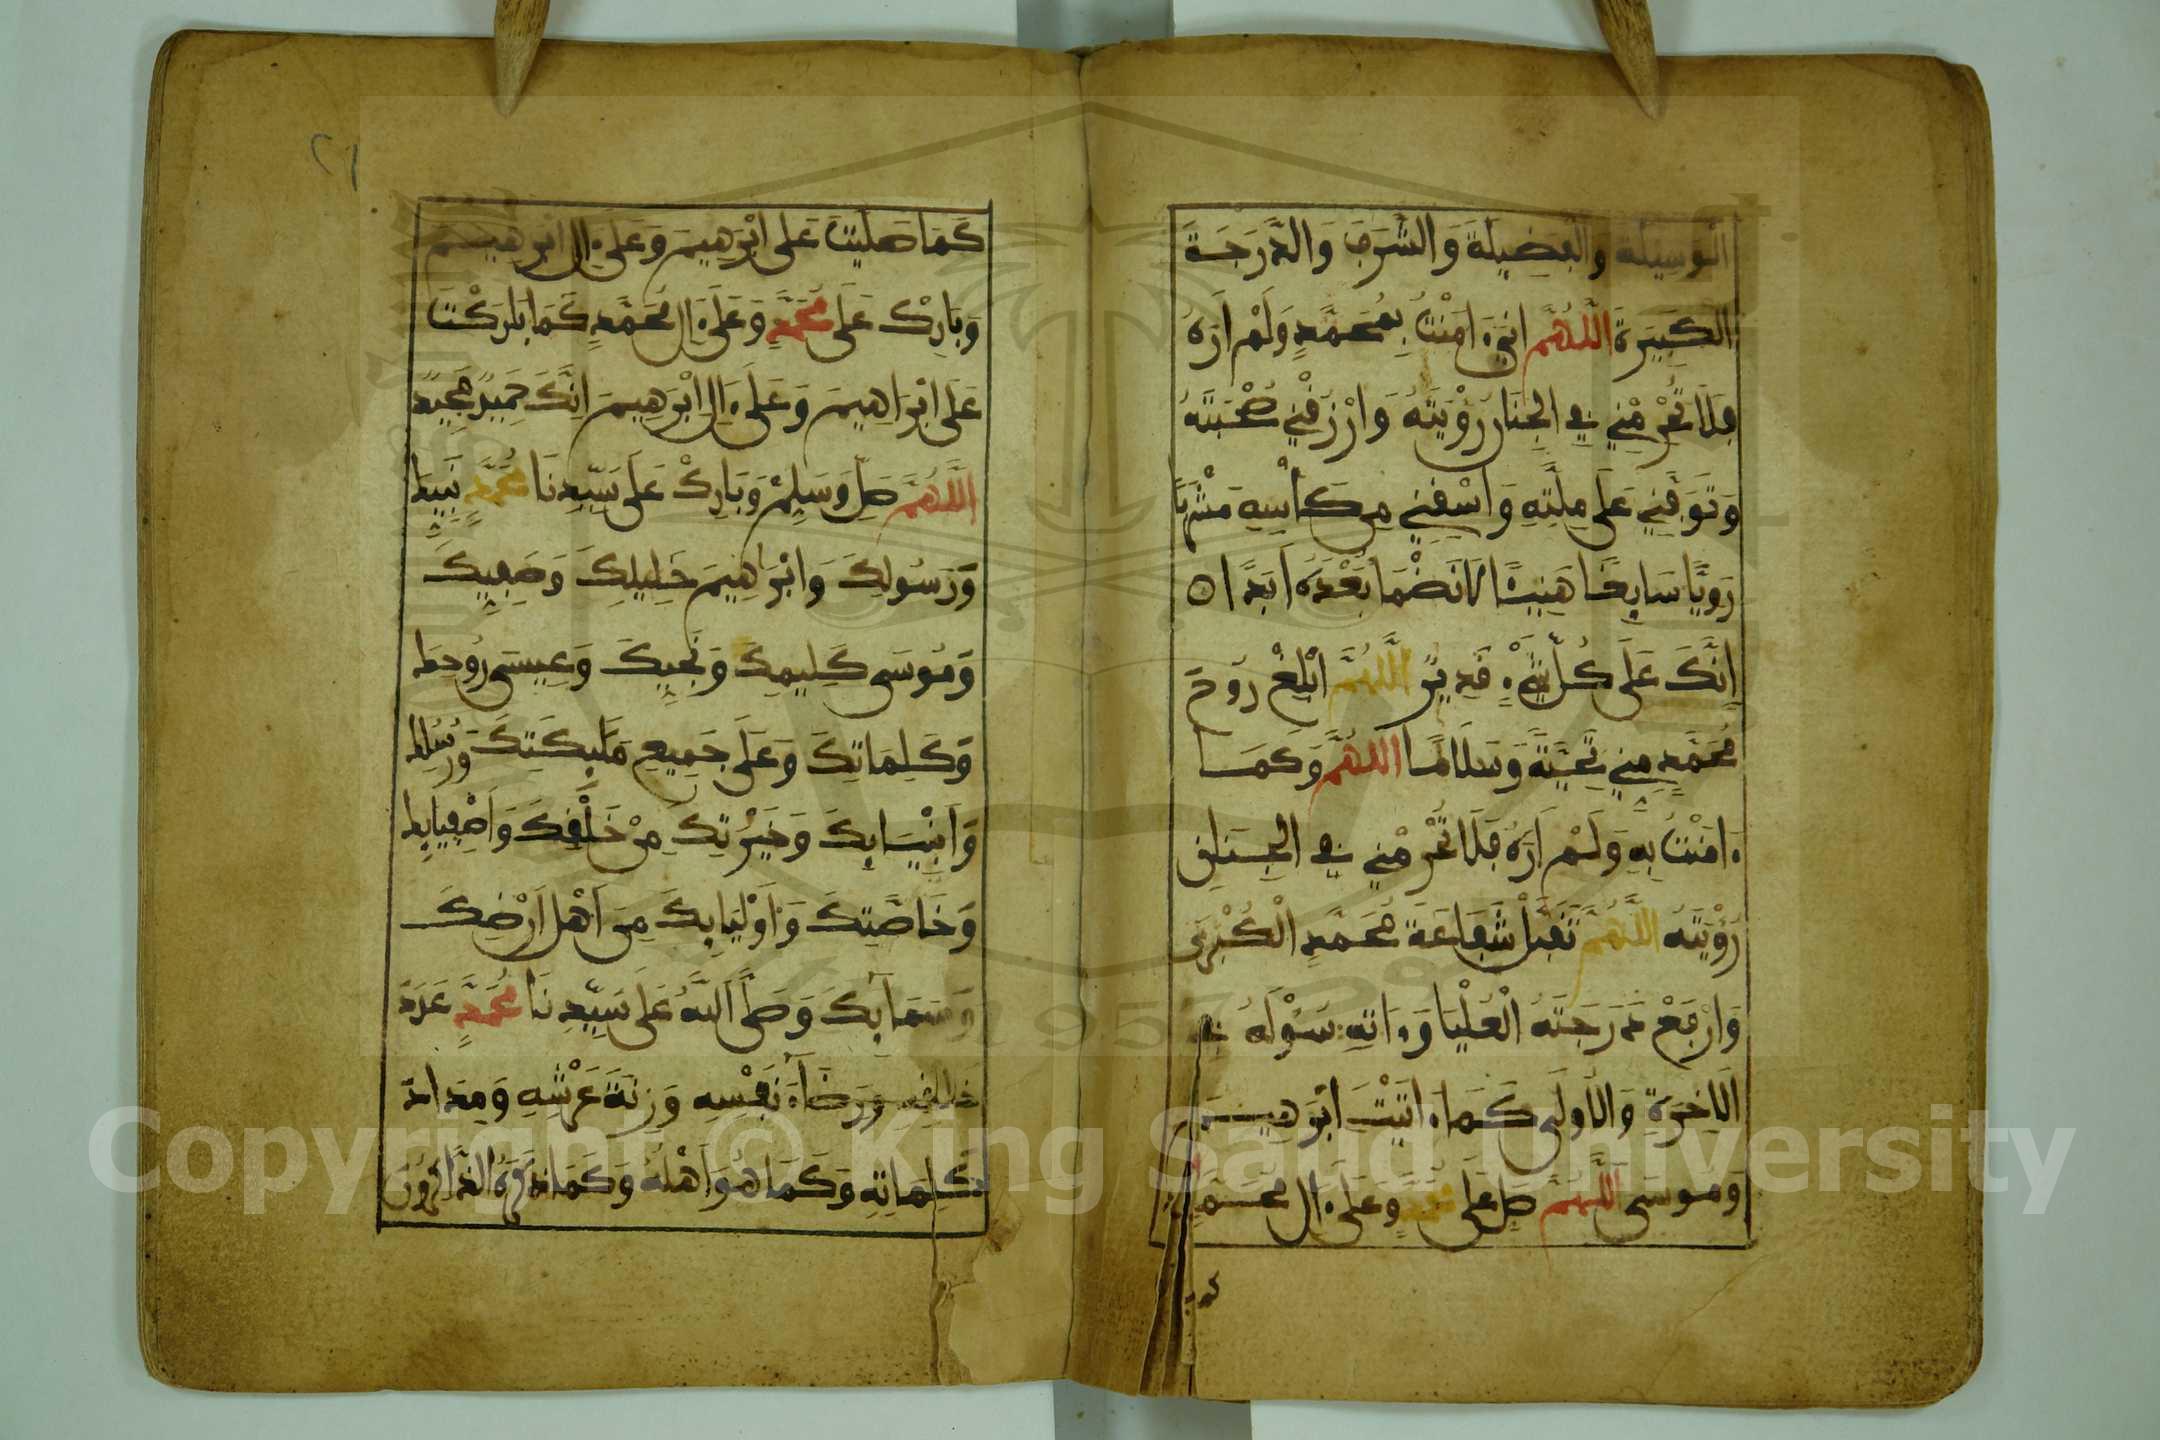 الْوَسِيلَةَ وَالْفَضِيلَةَ وَالشَّرَفَ وَالدَّرَجَةَ
الْكَبِيرَةَ اللَّهُمَّ إِنِّي ءَامَنْتُ بِمُحَمَّدٍ وَلَمْ أَرَهُ
فَلَا تَحْرِمْنِي فِي الْجِنَانِ رُؤْيَتَهُ وَارْزُقْنِي صُحْبَتَهُ
وَتَوَفَّنِي عَلَى مِلَّتِهِ وَاسْقِنِي مِن كَأْسِهِ مَشْرَبًا
رَوِيًّا سَايِغًا هَنِيئًا لَا نَضْمَا بَعْدَهُ أَبَدًا ه
إِنَّكَ عَلَى كُلِّ شَيْءٍ قَدِيرٌ اللَّهُمَّ أَبْلِغْ رُوحَ
مُحَمَّدٍ مِنِّي تَحِيَّةً وَسَلَامًا اللَّهُمَّ وَكَمَا
ءَامَنْتُ بِهِ وَلَمْ أَرَهُ فَلَا تَحْرِمْنِي فِي الْجِنَانِ
رُؤْيَتَهُ اللَّهُمَّ تَقَبَّلْ شَفَاعَةَ مُحَمَّدٍ الْكُبْرَى
وَارْفَعْ دَرَجَتَهُ الْعُلْيَا وَءَاتِهِ سُؤْلَهُ فِي
الْآخِرَةِ وَالْأُولَى كَمَا ءَاتَيْتَ إِبْرَهِيمَ
وَمُوسَى اللَّهُمَّ صَلِّ عَلَى مُحَمَّدٍ وَعَلَى ءَالِ مُحَمَّدٍ
كما
٢١
كَمَا صَلَّيْتَ عَلَى إِبْرَهِيمَ وَعَلَى ءَالِ إِبْرَهِيمَ
وَبَارِكْ عَلَى مُحَمَّدٍ وَعَلَى ءَالِ مُحَمَّدٍ كَمَا بَارَكْتَ
عَلَى إِبْرَاهِيمَ وَعَلَى ءَالِ إِبْرَهِيمَ إِنَّكَ حَمِيدٌ مَجِيدٌ
اللَّهُمَّ صَلِّ وَسَلِّمْ وَبَارِكْ عَلَى سَيِّدِنَا مُحَمَّدٍ نَبِيِّكَ
وَرَسُولِكَ وَإِبْرَاهِيمَ خَلِيلِكَ وَصَفِيِّكَ
وَمُوسَى كَلِيمِكَ وَنَجِيِّكَ وَعِيسَى رُوحِكَ
وَكَلِمَاتِكَ وَعَلَى جَمِيعِ مَلَٰئِكَتِكَ وَرُسُلِكَ
وَأَنْبِيَايِكَ وَخَيْرَتِكَ مِنْ خَلْقِكَ وَأَصْفِيَايِكَ
وَخَاصَّتِكَ وَأَوْلِيَايِكَ مِنَ أَهْلِ أَرْضِكَ
وَسَمَايِكَ وَصَلَّى اللَّهُ عَلَى سَيِّدِنَا مُحَمَّدٍ عَدَدَ
خَلْقِهِ وَرِضَاءَ نَفْسِهِ وَزِنَةَ عَرْشِهِ وَمِدَادَ
كَلِمَاتِهِ وَكَمَا هُوَ أَهْلُهُ وَكَمَا ذَكَرَهُ الذَّاكِرُونَ
1957
Copyright © King Saud University